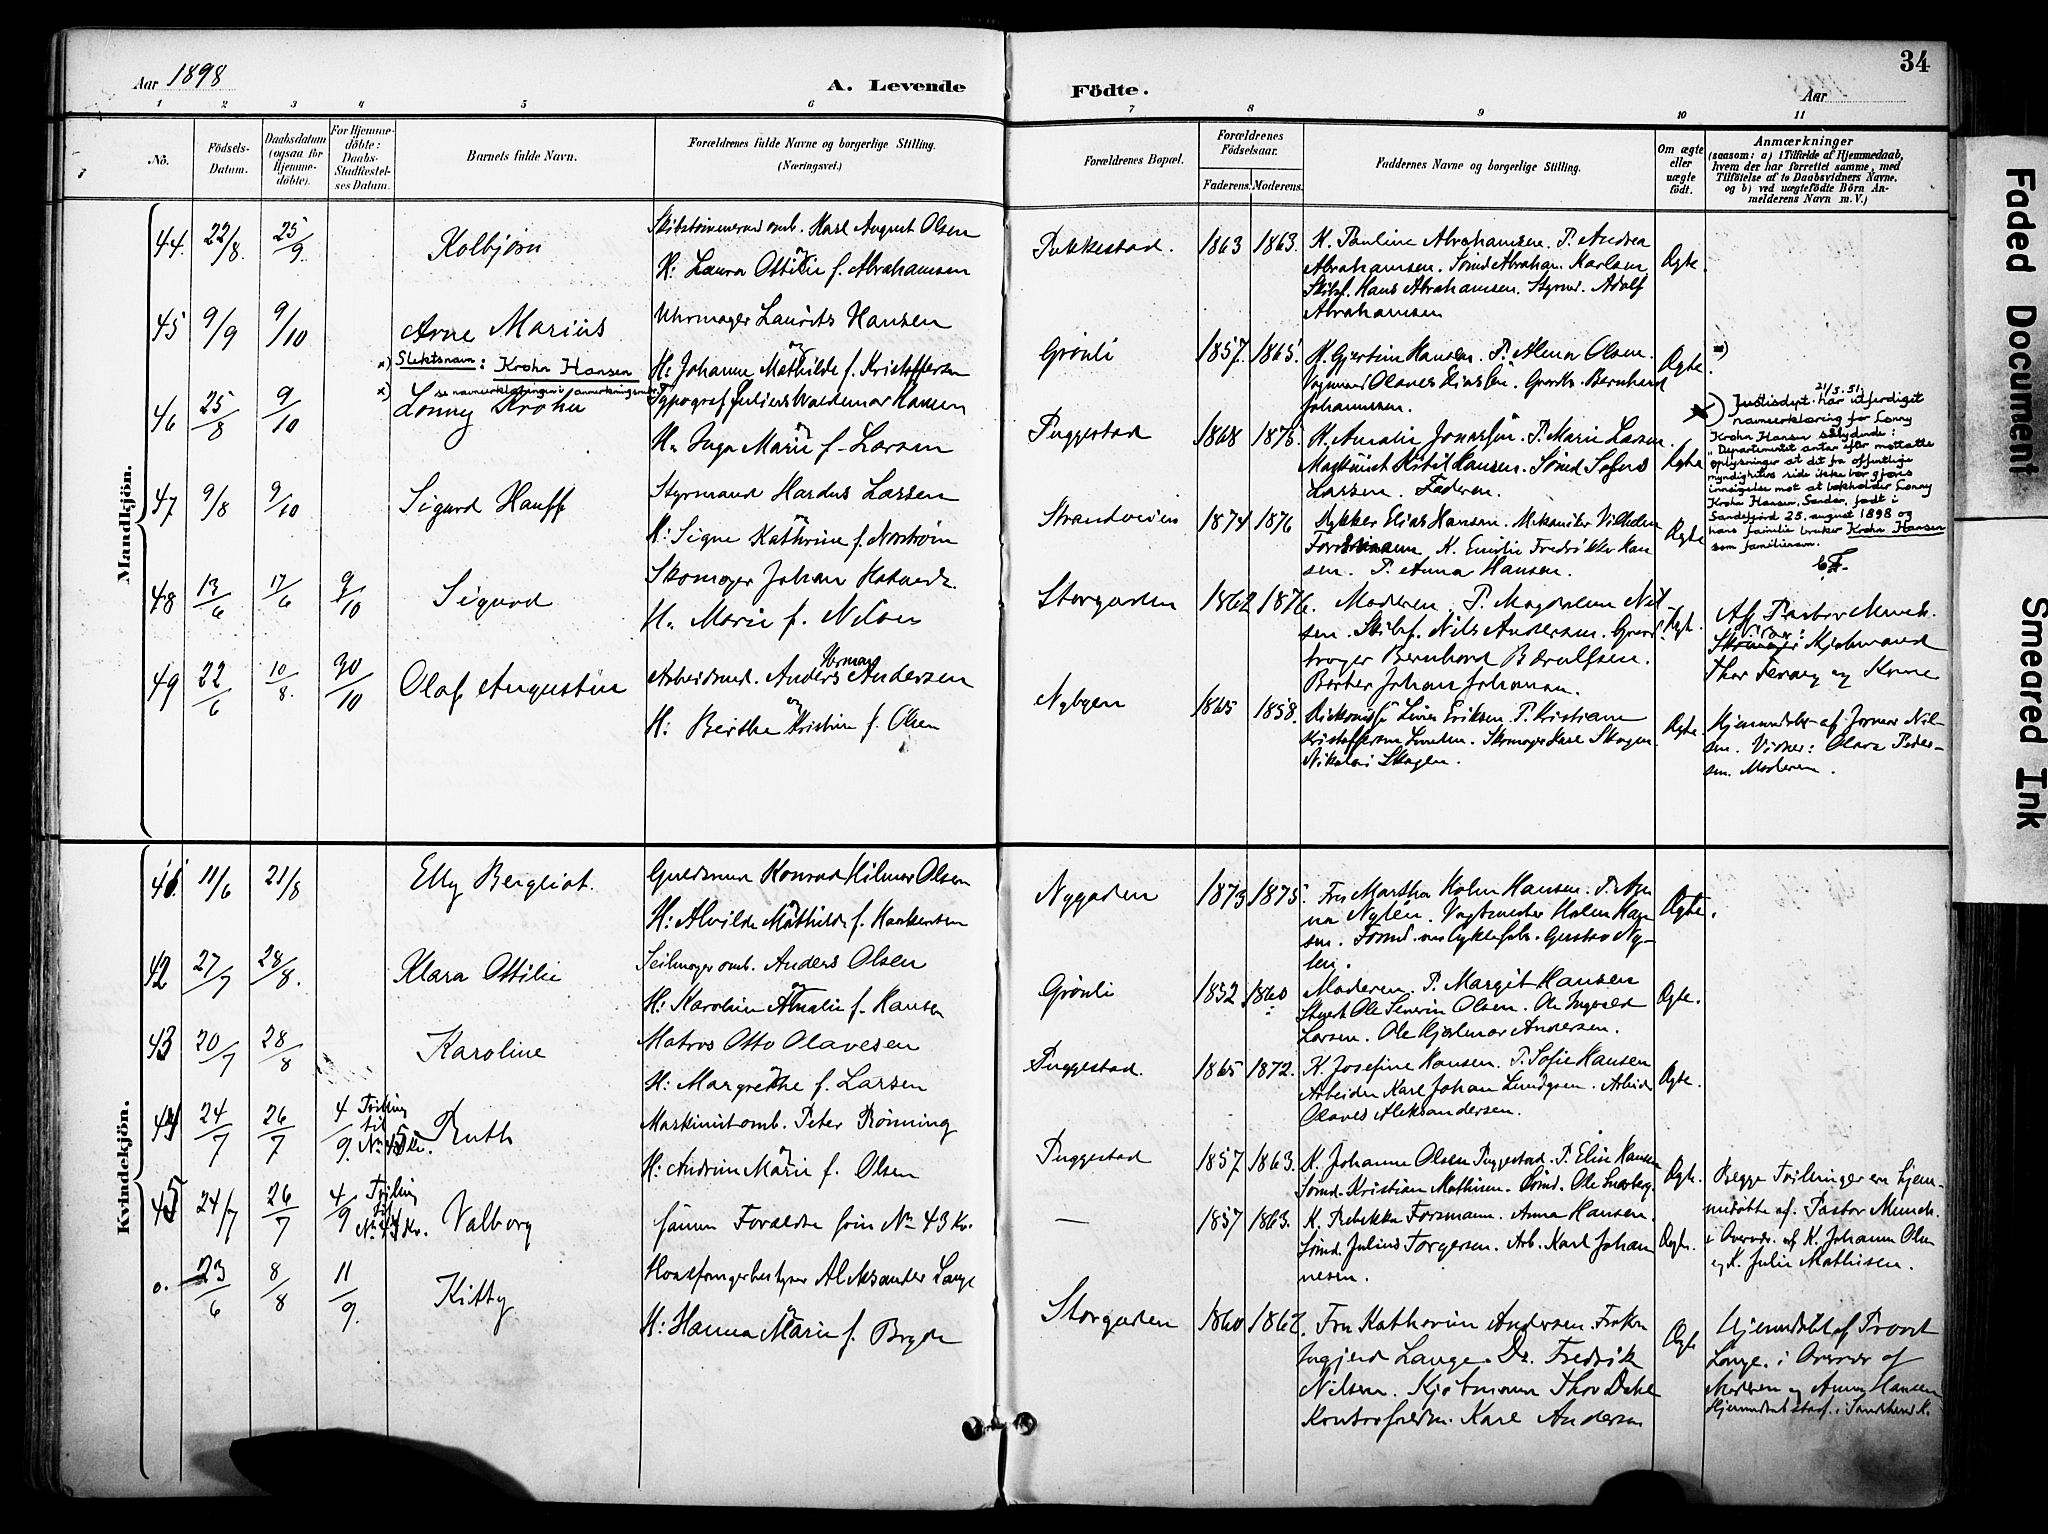 34
Aar 1898
A. Levende
Födte.
Aar
1 2 3 4 5 6 7 8 9 10 11
No.
Födsels-
Datum.
Daabsdatum
(ogsaa for
Hjemme-
döbte).
For Hjemme-
döbte:
Daabs-
Stadfæstel-
ses Datum.
Barnets fulde Navn.
Forældrenes fulde Navne og borgerlige Stilling.
(Næringsvei.)
Forældrenes Bopæl.
Forældrenes
Födselsaar.
Faderens. Moderens.
Faddernes Navne og borgerlige Stilling.
Om ægte
eller
uægte
födt.
Anmærkninger
(saasom: a) i Tilfælde af Hjemmedaab,
hvem der har forrettet samme, med
Tilföielse af to Daabsvidners Navne,
og b) ved uægtefödte Börn An-
melderens Navn m. V.)
Mandkjön.
44. 22/8. 25/9 Kolbjørn
Skibstømmermd omb. Karl August Olsen
H: Laura Ottilie f. Abrahamsen
Pukkestad. 1863 1863.
K. Pauline Abrahamsen. P. Andrea
Abrahamsen. Sømd Abraham Karlsen
Skibsf. Hans Abrahamsen. Styrmd. Adolf
Abrahamsen
Ægte.
45 9/9 9/10 Arne Marius
x) Slektsnavn: Krohn Hansen
Uhrmager Laurits Hansen
og
H: Johanne Mathilde f. Kristoffersen
Grønli 1857. 1865.
K. Gjertine Hansen. P. Alma Olsen.
Vognmand Olaves Eliassen. Bernhard
Johannesen.
Ægte.
x)
46 25/8 9/10 x) se navneerklæringen i anmerkningsrubr.
Lonny Krohn
Typograf Julius Waldemar Hansen
og
H: Inga Marie f. Larsen
Puggestad 1868 1875.
K. Amalie Jonassen. P. Marie Larsen.
Maskinist Ketil Hansen. Sømd Sofus
Larsen. Faderen.
Ægte
x) 21/3.51.
Justisdept. har utferdiget
navneerklæring for Lonny
Krohn Hansen sålydende:
"Departementet antar efter mottatte
oplysninger at det fra offentlige
myndigheters side ikke bør gjøres
innsigelse mot at bokholder Lonny
Krohn Hansen, Sandar, født i
Sandefjord 25. august 1898 og
hans familie bruker Krohn Hansen
som familienavn.
47 9/8 9/10 Sigurd Hauff
Styrmand Hardus Larsen
og
H: Signe Kathrine f. Norstrøm
Strandveien 1874 1876
Elias Hansen. Vilhelm
K. Emilie Fredrikke Han
sen. P. Anna Hansen.
Ægte
48 13/6 17/6 9/10 Sigurd
Skomager Johan
H: Marie f. Nilsen
Storgaden 1862 1876.
Moderen. P. Magdalene Nil-
sen. Skibsf. Nils Andersen.
Bernhard Bærulfsen.
Barber Johan Johansen.
Ægte.
Af Pastor Munch.
Vidner:
Kjøbmand
Thor og Kone
49 22/6 10/8. 30/10 Olaf Augustin
Herman
Arbeidsmd. Anders Andersen
og
H: Berthe Kristine f. Olsen
Nybyen 1865 1858.
Eriksen. P. Kristiane
Kristoffersen Skomager Karl Skogen
Nikolai Skogen.
Ægte.
Hjemmedøbt af Jormor Nil-
sen. Vidner: Olava Peder-
sen. Moderen.
Kvindekjön.
41. 11/6 21/8 Elly Bergliot.
Guldsmed Konrad Hilmar Olsen
og
H: Alvilde Mathilde f. Haakensen
Nygaden 1873 1875.
Fru Martha Holm Hansen. P. Ag-
na Nylén. Vagtmester Holm Han
sen. Gustav Ny-
lén.
Ægte.
42 27/7 28/8. Klara Ottilie
Seilmager omb. Anders Olsen
og
H: Karoline Amalie f. Hansen
Grønli 1852. 1860
Moderen. P. Margit Hansen
Ole Severin Olsen. Ole Ingvald
Larsen. Ole Hjalmar Andersen.
Ægte.
43 20/7 28/8 Karoline
Matros Otto Olavesen
H: Margrethe f. Larsen
Puggestad. 1865 1872.
K. Josefine Hansen. P. Sofie Hansen
Arbeider Karl Johan Lundgren. Arbeid
Olaves Aleksandersen.
Ægte.
44 24/7 26/7 4/9. Tvilling
til
No 45 Kv. Ruth
Maskinist omb. Peter Rønning
og
H: Andrine Marie f. Olsen
Puggestad 1857. 1863.
K. Johanne Olsen Puggestad. P. Elise Hansen
Sømd. Kristian Mathisen. Sømd. Ole
Ægte.
Begge Tvillinger ere hjem-
medøbte af Pastor Munch.
i Overvær af K. Johanne Olsen
og K. Julie Mathisen.
45 24/7 26/7 4/9 Tvilling
til
No 44 Kv. Valborg
samme Forældre som No 43 Kv.
— 1857 1863.
K. Rebekka Forsmann. Anna Hansen.
Sømd. Julius Torgersen. Arb. Karl Johan
nesen.
Ægte.
o. 23/6 8/8 11/9. Kitty
Hvalfangerbestyrer Aleksander Lange
og
H: Hanna Marie f. Bryde
Storgaden 1860 1862.
Fru Kathrine Andersen. Frøken
Ingjerd Lange. Dr. Fredrik
Nilsen. Kjøbmann Thor Dahl
Kontorforstdr. Karl Andersen
Ægte
Hjemmedøbt af Provst
Lange. i Overvær af
Moderen og Anna Hansen
Hjemmedaab stadf. i Sandeherred K.
Faded Document
Smeared Ink